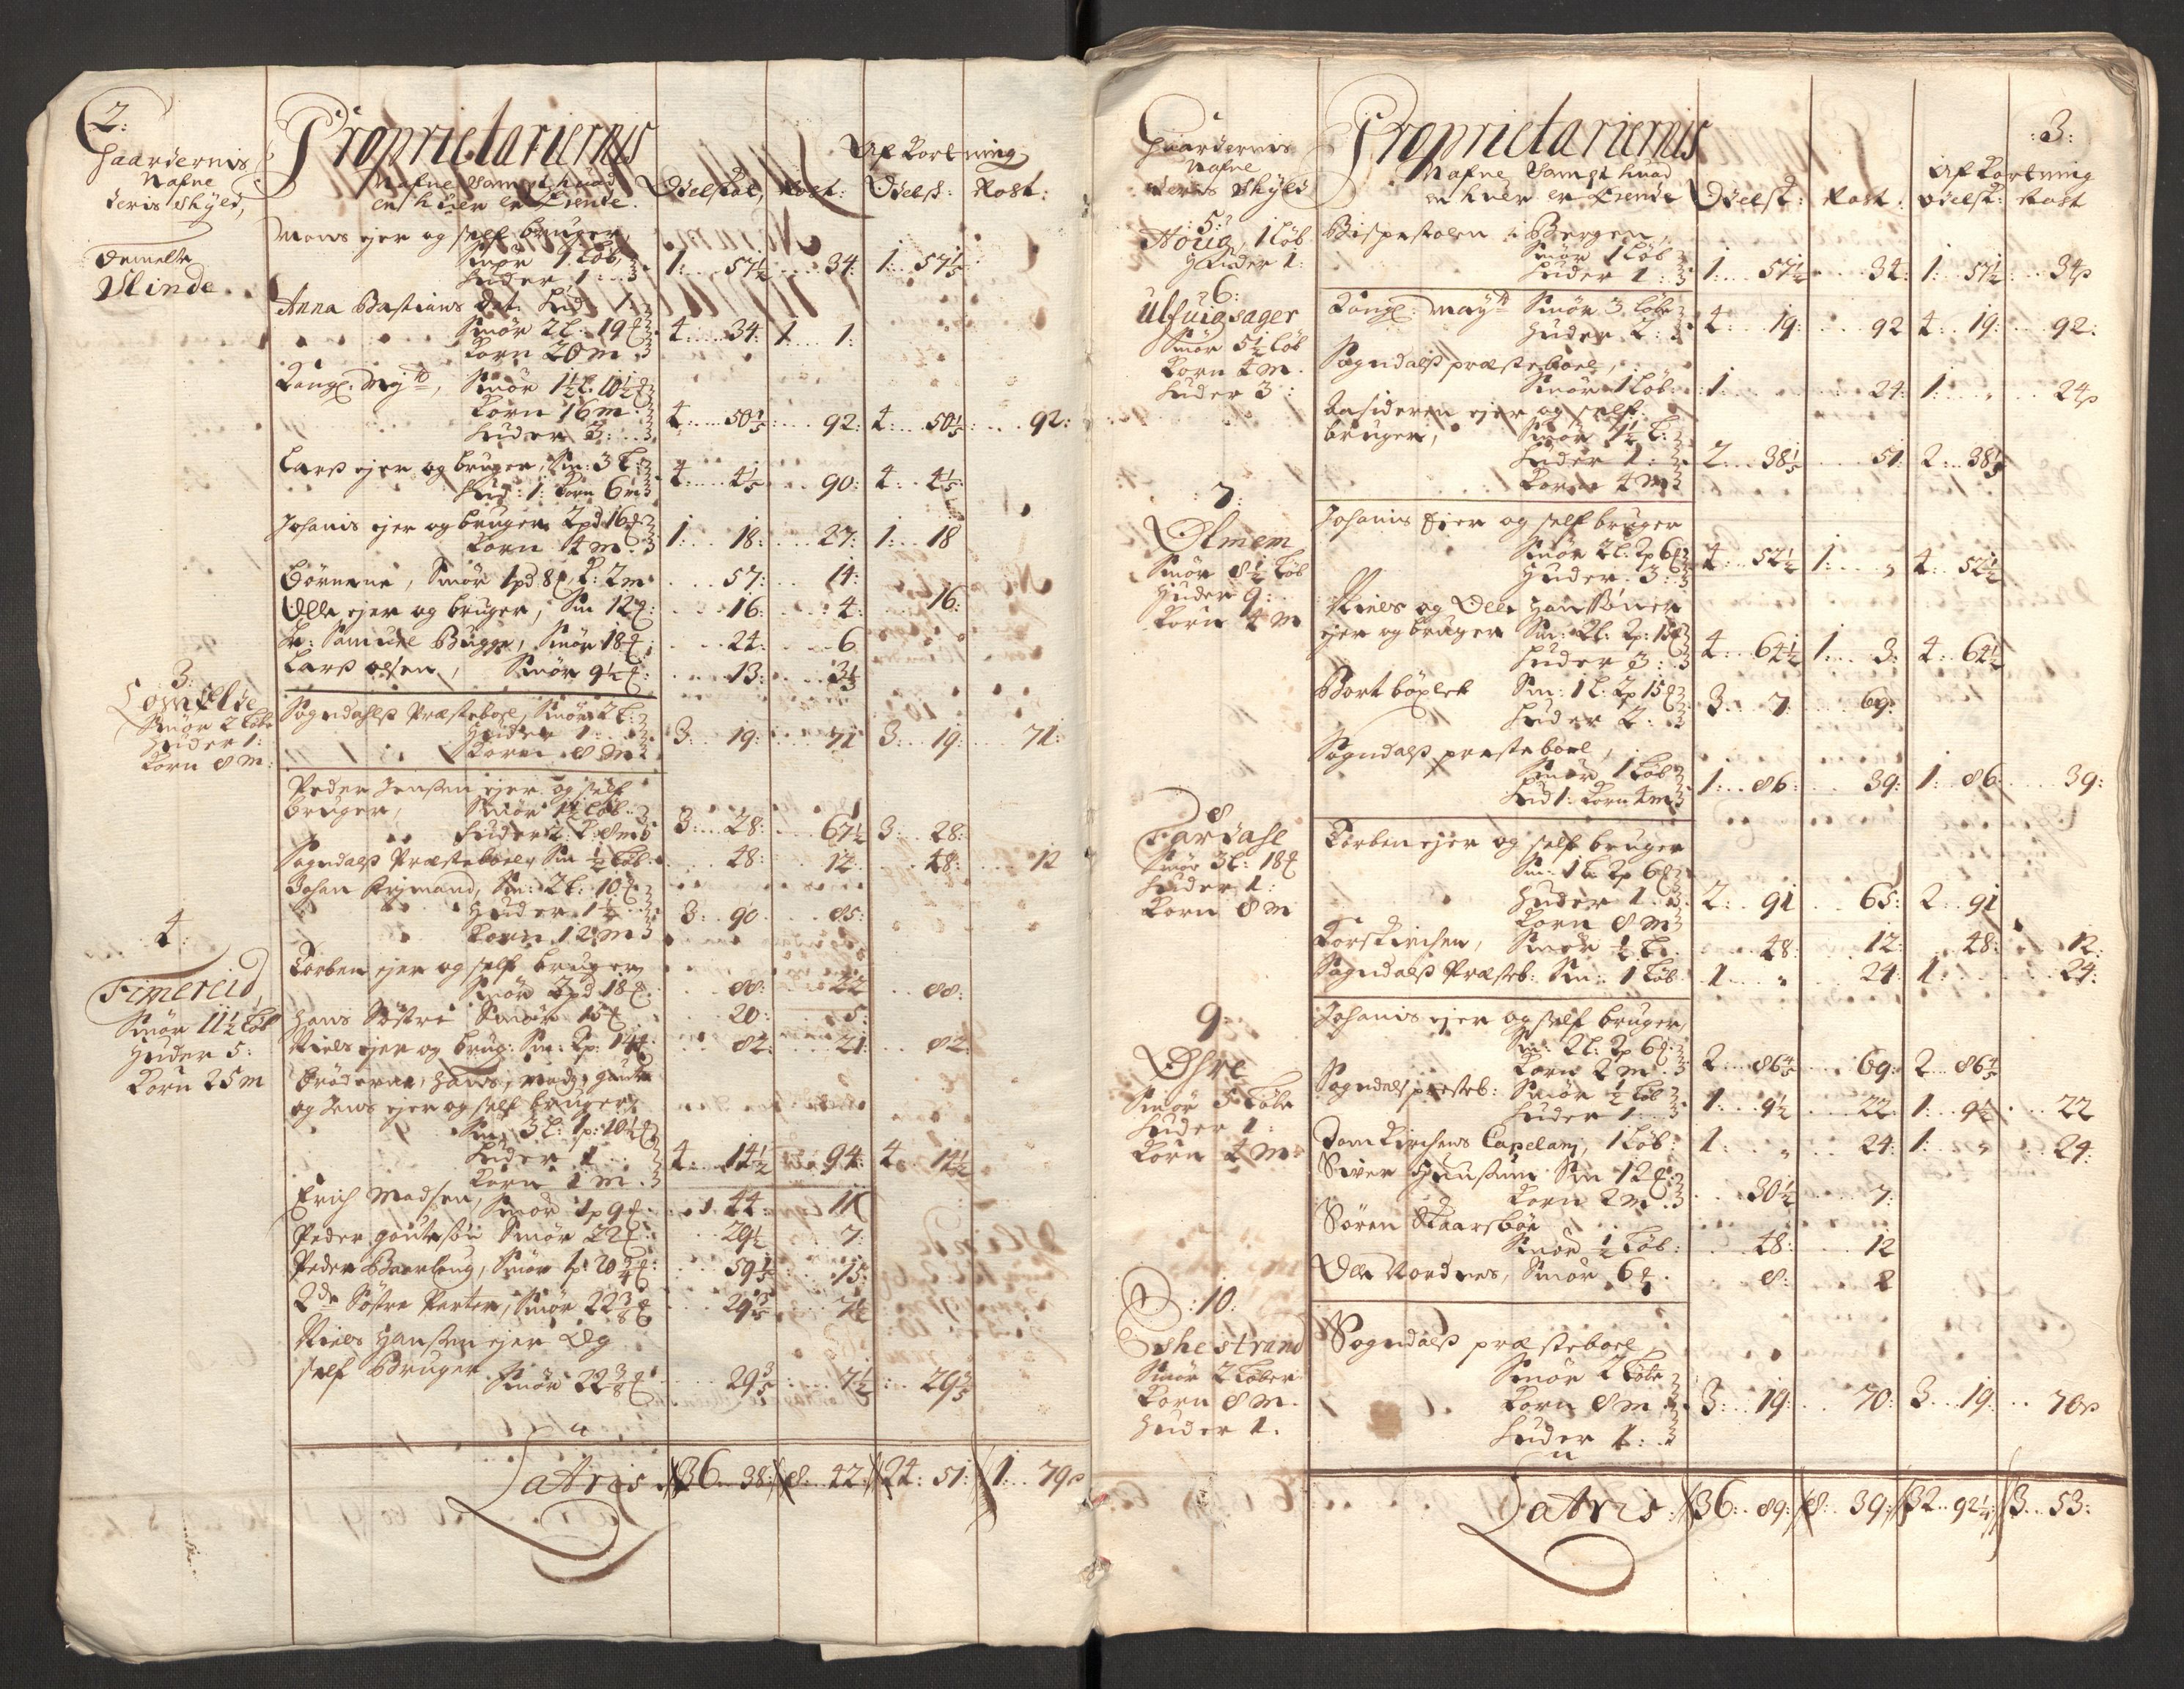 2:
Gaardernis
Nafne
deris Skyld,
Proprietariernis
Nafne Sampt huad
en huer er Eiende.
Odelskat, Rost:
Afkortning
Odelsk: Rost:
Demelte
Slinde
Mons ejer og self bruger,
Smør 1 Løb,
Huder 1: 1: 57½ 34: 1: 57½
Anna Bastians dat: Hud 1:
Smør 2 L: 19 4: 34: 1 1:
Korn 20 m
Kongl: Mayt, Smør 1½ L: 10½
Korn 16 m:
Huder 3: 4: 50⅕ 92: 4: 50⅕ 92:
Larss ejer og bruger, Sm: 3 L:
Hud: 1: Korn 6 m 4: 4⅕ 90: 4: 4⅕
Johanis ejer og bruger 2 pd 16
Korn 4 m: 1: 18: 27: 1: 18
Børnene, Smør 1 pd 8, K: 2 m 57: 14:
Olle ejer og bruger, Sm 12: 16: 4: 16:
Hr: Samuel Bugge, Smør 18: 24: 6
Larss olsen, Smør 9½: 13: 3⅓
3:
Lomelde
Smør 2 Løbe
Huder 1:
Korn 8 m:
Sogndahlss Præsteboel, Smør 2 L:
Huder 1:
Korn 8 m 3: 19: 71 3: 19: 71:
4
Fimereid
Smør 11½ Løb
Huder 5:
Korn 25 m
Peder Jensen ejer og self
bruger, Smør 1½ Løb:
Huder 2 K: 8 m 3: 28: 67½ 3: 28:
Sogndalss Præsteboel, Sm ½ Løb: 48: 12: 48: 12
Johan Frimand, Sm: 2 L: 10
Huder 1½
Korn 12 m 3: 90 85:
Torben ejer og self bruger
Smør 2 pd 18: 88: 22 88:
Hans Søstre Smør 15 20: 5:
Niels ejer og brug: Sm: 2 p: 14: 82: 21: 82:
Brøderne, Hans, Mads, Gaute
og Jens ejer og self bruger,
Sm: 3 L: 1 p: 10½
Huder 1
Korn 1 m 4: 14½ 94: 4 14½
Erich Madsen, Smør 1 p 9: 44: 11
Peder Gautesøn Smør 22: 29½ 7:
Peder Baarlaug, Smør 1 p: 20¾: 59⅕ 15:
2de Søstre Parter, Smør 22⅜ 29⅗ 7½
Niels Hansen ejer Og
self Bruger Smør 22⅜ 29⅗ 7½ 29⅗
Latris 36 38: 8: 42: 24: 51: 1: 79
:3:
Gaardernis
Nafne
deris Skyld
Proprietariernis
Nafne Sampt huad
en huer er Eiende
Odelsk: Rost:
Afkortning
Odelsk: Rost
5:
Houg, 1 Løb
Huder 1:
Bispestolen i Bergen,
Smør 1 Løb
Huder 1: 1: 57½ 34: 1: 57½ 34
6:
Ulfuigsager
Smør 5½ Løb
Korn 4 m.
Huder 3:
Kongl: Mayt Smør 3 Løbe
Huder 2: 4: 19: 92 4: 19: 92:
Sogndalss præsteboel,
Smør 1 Løb: 1: 24: 1: 24
ejer og self
bruger, Smør 1½ L:
Huder 1:
Korn 4 m 2 38⅕ 51 2 38⅕
7:
Ølmem
Smør 8½ Løb
Huder 9:
Korn 4 m
Johanis Eier og self bruger
Smør 2 L: 2 p 6
Huder 3: 4: 52½ 1: 4: 52½
Niels og Olle Hansøner
ejer og bruger Sm: 2 L: 2 p: 15
Huder 3: 4: 64½ 1: 3: 4: 64½
Bort bøxlet Sm: 1 L: 2 p 15
Huder 2: 3: 7: 69:
Sogndalss præsteboel,
Smør 1 Løb
Hud 1: Korn 4 m 1: 86: 39: 1: 86 39:
8
Fardahl
Smør 3 L: 18
Huder 1:
Korn 8 m
Torben ejer og self bruger
Sm: 1 L: 2 p 6
Huder 1:
Korn 8 m 2: 91 65: 2: 91
Korskirchen, Smør ½ L: 48: 12: 48: 12:
Sogndalss Præsteb: Sm: 1 Løb 1 24: 1: 24:
9:
Øhre
Smør 5 Løbe
Huder 1:
Korn 4 m
Johanis ejer og self bruger,
Sm: 2 L: 2 p 6
Korn 2 m 2 86⅘ 69: 2 86⅘
Sogndalss præsteb: Smør ½ Løb
Huder 1: 1: 9½ 22 1: 9½ 22
Domkirchens Capelani, 1 Løb: 1: 24: 1: 24:
Siver Sm 12
Korn 2 m 30½ 7:
Søren
Smør ½ Løb: 48: 12
Olle Nordnes, Smør 6: 8: 2
:10:
Eshestrand
Smør 2 Løber
Korn 8 m.
Huder 1.
Sogndalss præsteboel
Smør 2 Løbe
Korn 8 m
Huder 1: 3: 19: 70: 3 19: 70
Latris: 36: 89: 8: 39: 32: 92½ 3: 53: